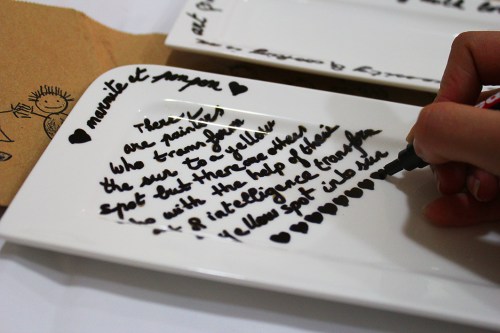 marmite et pompon
There
are painters
who transform
the sun to a yellow
spot but there are others
with the help of their
& intelligence transform
yellow spot into sun
art